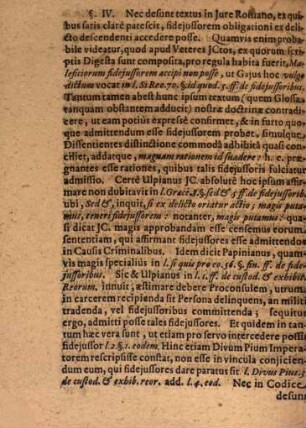 §. IV. Nec desunt textus in Jure Romano, ex qui-
bus satis clarè patescit, fidejussorem obligationi ex de-
licto descendenti accedere posse. Quamvis enim proba-
bile videatur, quod apud Veteres JCtos, ex quorum scri-
ptis Digesta sunt composita, pro regula habita fuerit, Ma-
leficiorum fidejussorem accipi non posse, ut Gajus hoc vulgo
dictum vocat in l. Si Reo. 70. § id quod. 5. ff. de fidejussoribus.
Tantum tamen abest hunc ipsum textum (quem Glossa
veniam obstantem adducit) nostræ doctrinæ contradi-
cere, ut eam potius expressè confirmet, & in furto quo-
que admittendum esse fidejussorem probet, simulque
Dissentientes distinctione commodâ adhibitâ quasi con-
ciliet, addatque, magnam rationem id suadere: h. e. præ-
gnantes esse rationes, quibus talis fidejussoris fulciatur
admissio. Certè Ulpianus JC. absolutè hoc ipsum affir-
mare non dubitavit in l. Græcè. 8. §. sed & 5 ff. de fidejussoribus,
ubi, Sed &, inquit, si ex delicto oriatur actio; magis puta-
mus, teneri fidejussorem: notanter, magis putamus: qua-
si dicat JC. magis approbandam esse censemus eorum
sententiam, qui affirmant fidejussores esse admittendos
in Causis Criminalibus. Idem dicit Papinianus, quam-
vis magis specialius in l. si quis pro eo. 56. §. fin. ff. de fide-
jussoribus. Sic & Ulpianus in l. 1. ff. de custod. & exhibit.
Reorum. innuit, æstimare debere Proconsulem, utrum
in carcerem recipienda sit Persona delinquens, an militi
tradenda, vel fidejussoribus committenda; sequitur
ergò, admitti posse tales fidejussores. Et quidem in tan-
tum hæc vera sunt, ut etiam pro servo intercedere possit
fidejussor l. 2. §. 1. eodem. Hinc etiam Divum Pium Impera-
torem rescripsisse constat, non esse in vincula conjicien-
dum eum, qui fidejussores dare paratus sit. l. Divus Pius. 3
de custod. & exhib. reor. add. l. 4. eod. Nec in Codice
desunt